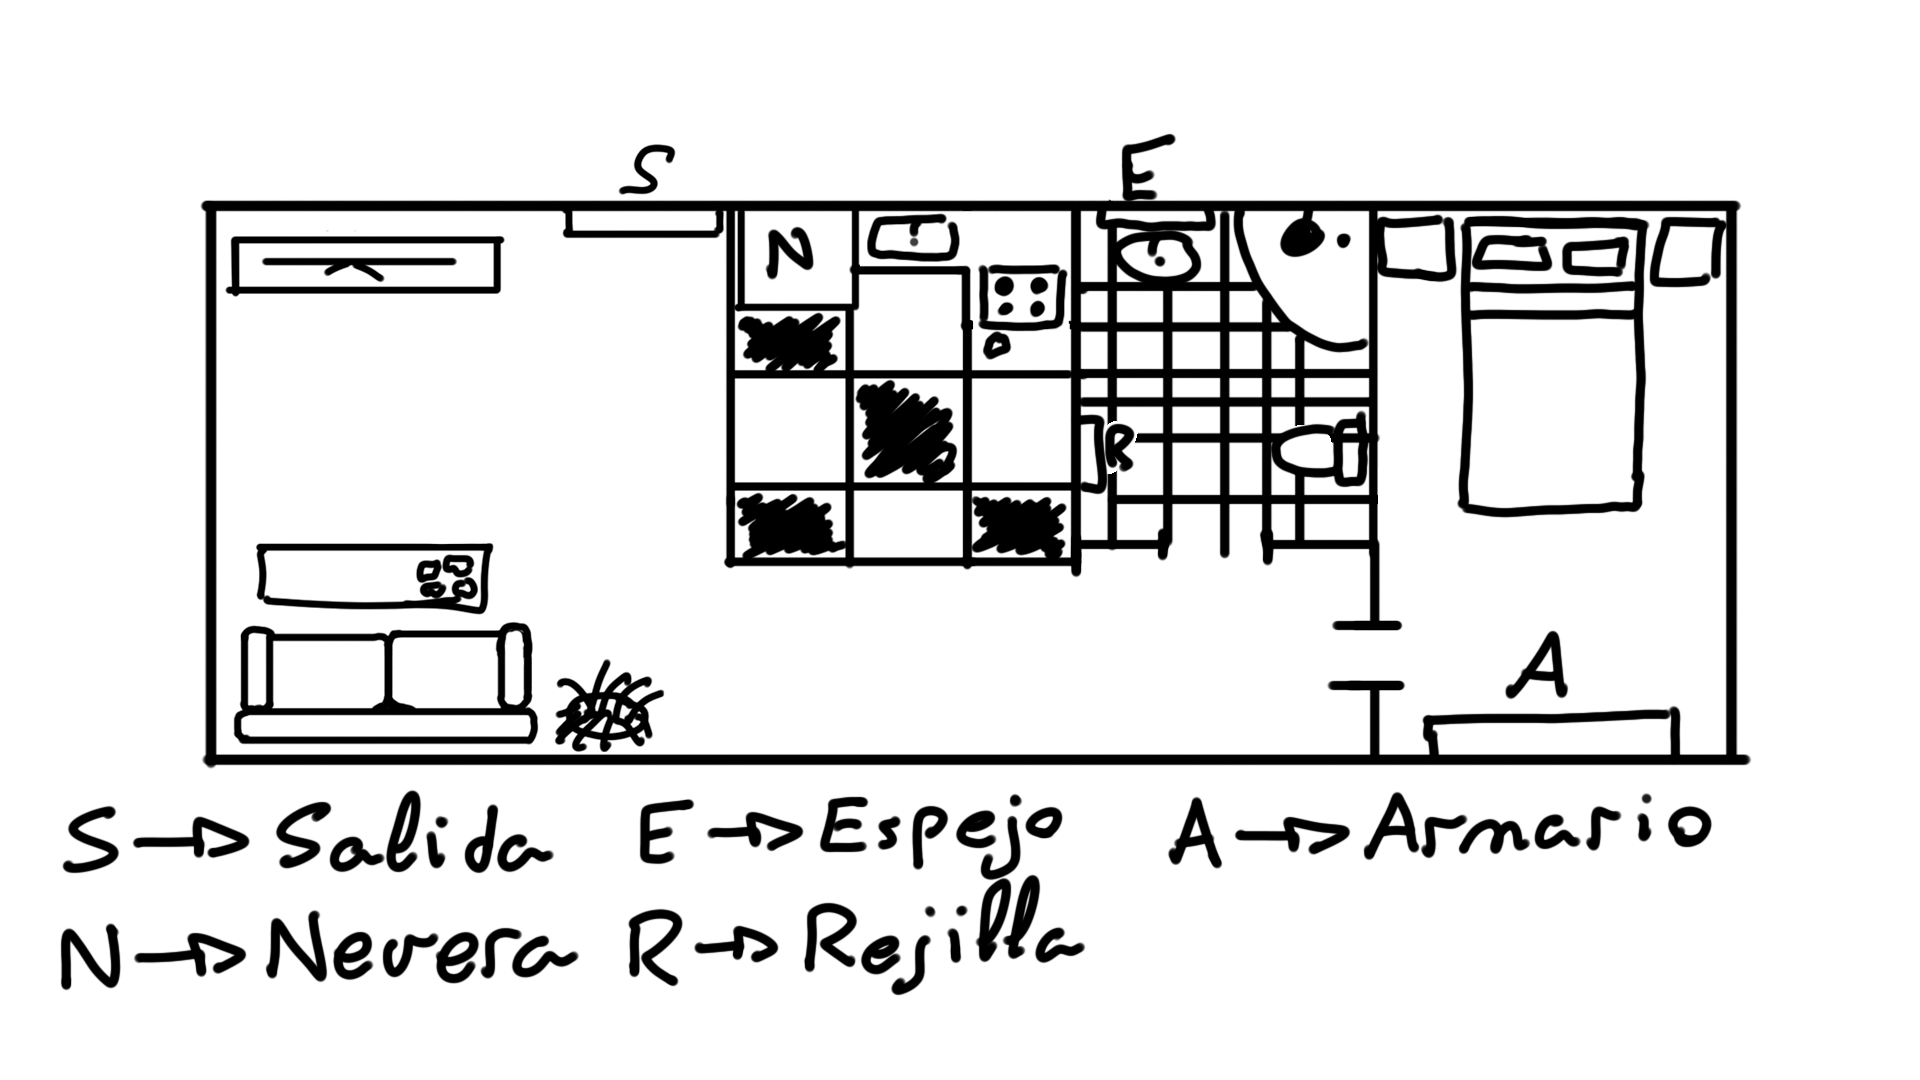 S E
N
R
A
S → Salida E → Espejo A → Armario
N → Nevera R → Rejilla